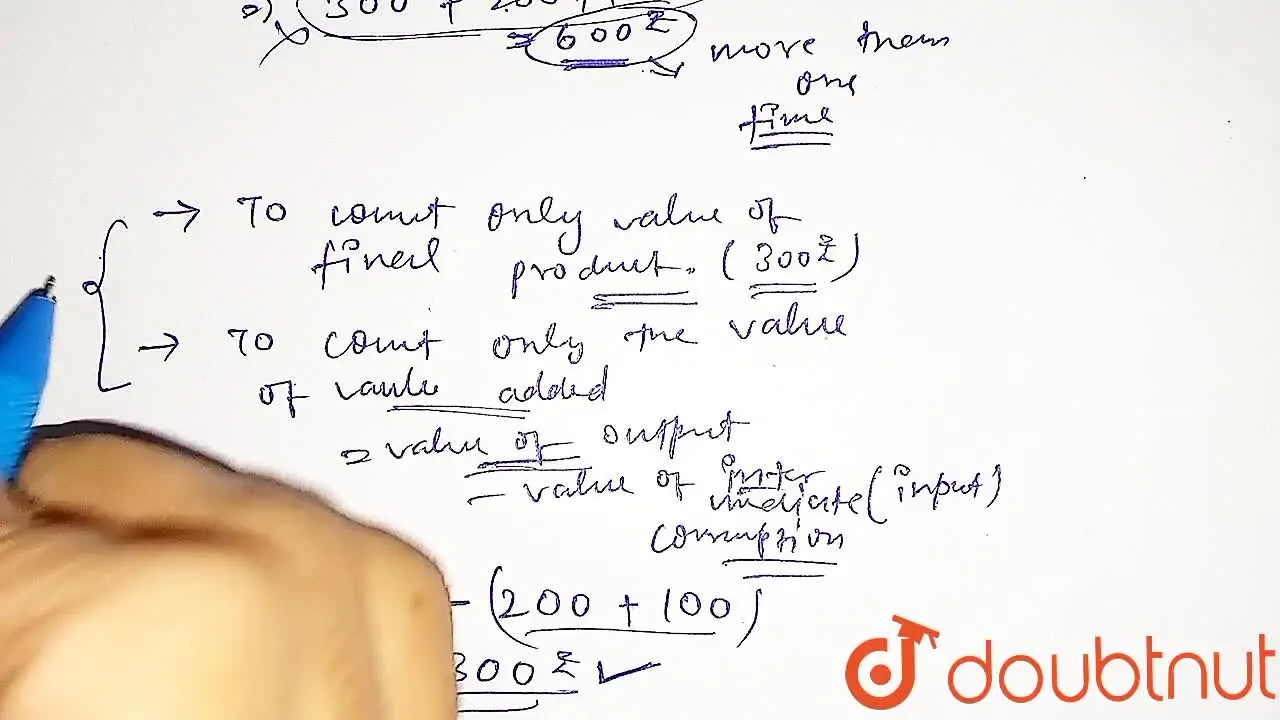 300 + 200
= 600 ₹ more than
one
time
→ TO count only value of
final product. (300 ₹)
→ TO count only the value
of vaule added
= value of output
- value of inter
mediate (input)
consumption
- (200 + 100)
300 ₹ ✓
doubtnut